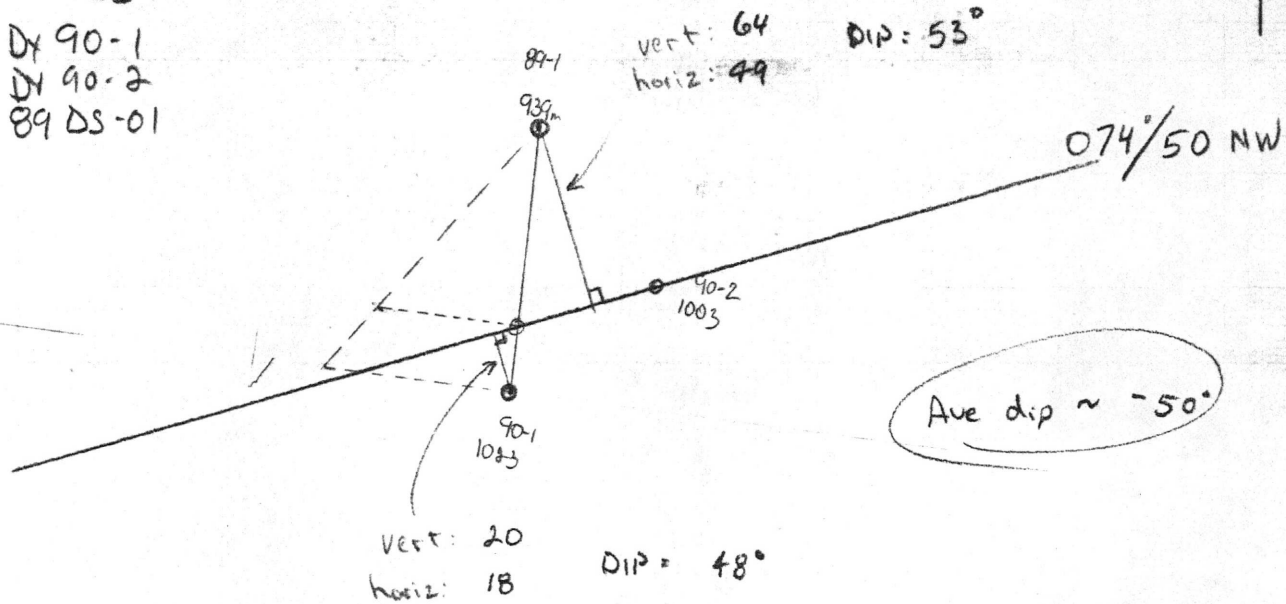 DY 90-1
DY 90-2
89 DS-01
89-1
939m
vert: 64
horiz: 49
DIP: 53°
074°/50 NW
90-2
1003
90-1
1023
Ave dip ~ -50°
vert: 20
horiz: 18
DIP = 48°